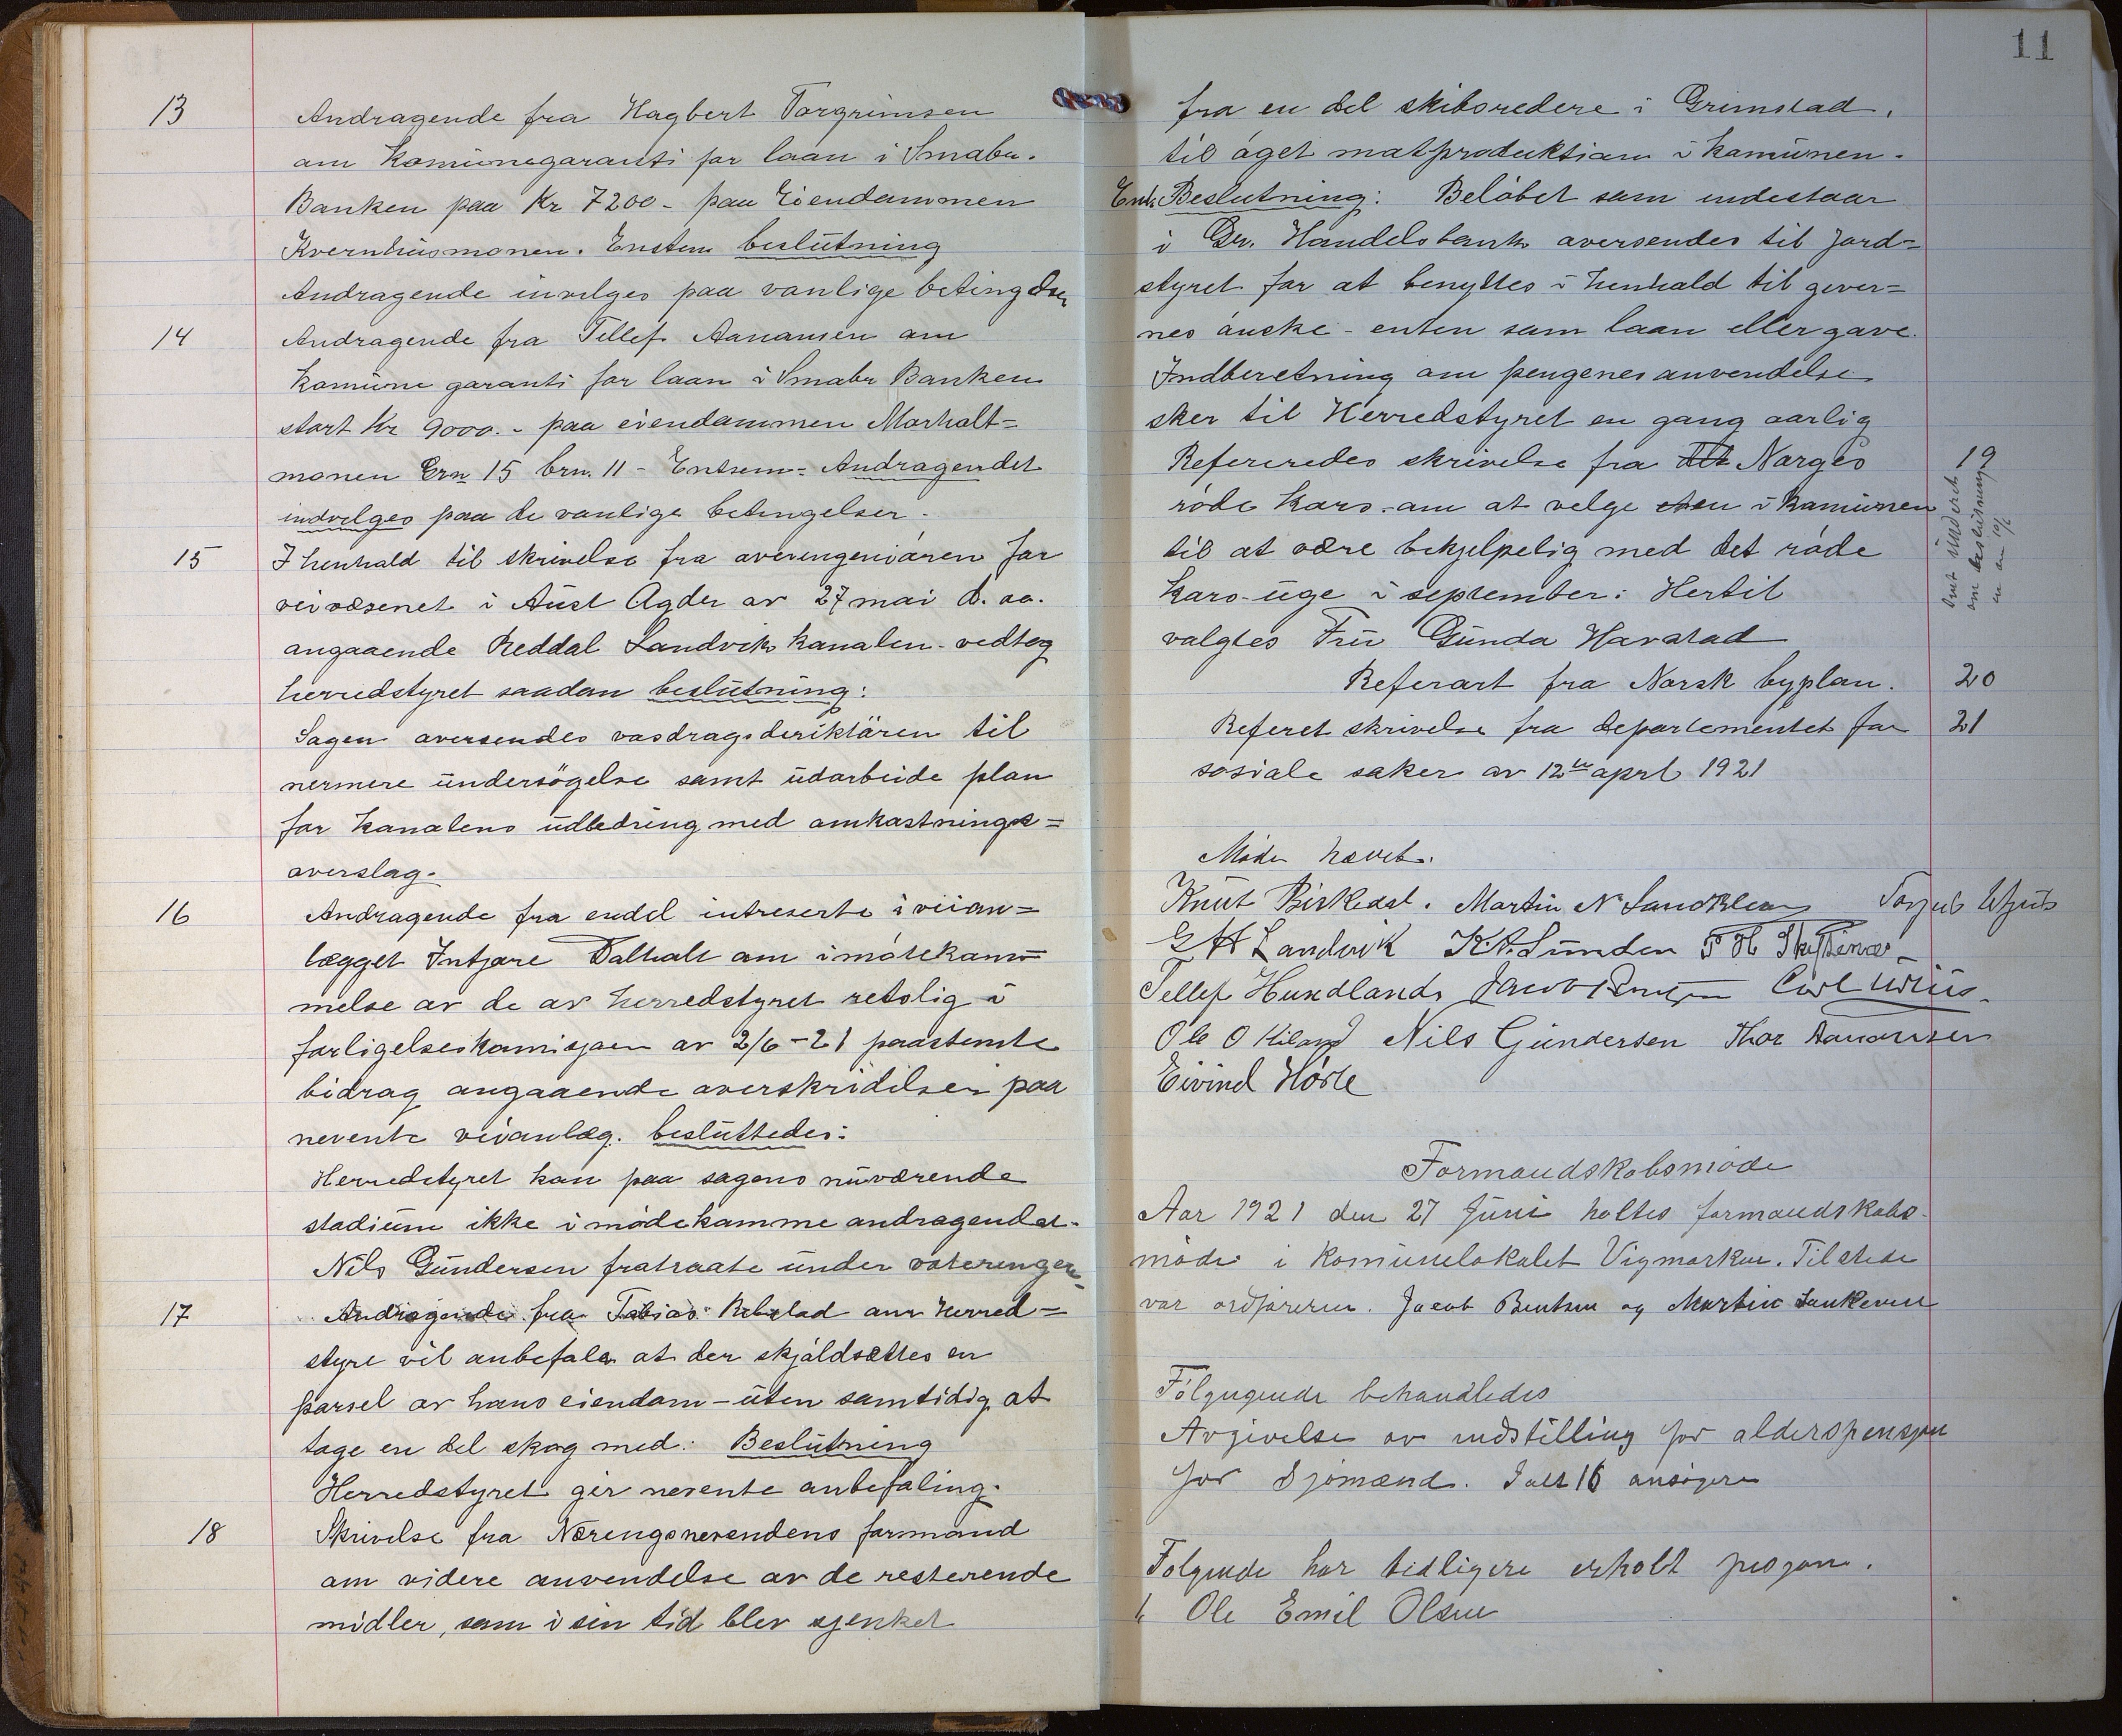 13 Andragende fra Hagbert Torgrimsen
om Komünegaranti for laan i Smabr.
Banken paa Kr 7200 - paa Eiendommen
Kvernhüsmonen. Enstem beslütning
Andragende invilges paa vanlige betingelser
14 Andragende fra Tellef Aanansen om
Komüne garanti for laan i Smabr Banken
stort Kr 9000. - paa eiendommen Morholt=
monen Grn 15 brn. 11 - Entsem= Andragendet
indvilges paa de vanlige betingelser.
15 I henhold til skrivelse fra overingeniøren for
veivæsenet i Aüst Agder av 27 mai d. aa.
angaaende Reddal Landvik kanalen - vedtog
herredstyret saadan beslütning:
Sagen oversendes vasdragsderiktören til
nermere ündersögelse samt üdarbeide plan
for kanalens üdbedring med omkastnings=
overslag.
16 Andragende fra endel intreserte i veian=
lægget Intjore Dalholt om imötekom=
melse av de av herredstyret retslig i
forligelseskomisjoen av 2/6-21 paastemte
bidrag angaaende overskridelsen paa
nevente veianlæg. beslüttedes:
Herredstyret kan paa sagens nüværende
stadiüm ikke i mödekomme andragendet.
Nils Gündersen fratraate ünder voteringen
17 Andragende fra Tobias Rebstad om Herred=
styre vil anbefale at der skjöldsættes en
parsel av hans eiendom - üten samtidig at
tage en del skog med: Beslütning
Herredstyret gir nevente anbefaling.
18 Skrivelse fra Næringsnevendens formand
om videre anvendelse av de resterende
midler, som i sin tid blev sjenket
11
fra en del skibsredere i Grimstad.
til öget matproduktion i komünen.
Enst. Beslutning: Belöbet som indestaar
i Gr. Handelsbank oversendes til Jord=
styret for at benyttes i henhold til giver=
nes önske - enten som laan eller gave.
Indberetning om pengenes anvendelse
sker til Herredstyret en gang aarlig
Refereredes skrivelse fra det Norges 19
röde Kors - om at velge en i Komünen
til at være behjelpelig med det röde
Kors-üge i september: Hertil
valgtes Frü Günda Havstad
Referart fra Norsk byplan. 20
Referet skrivelse fra departementet for 21
sosiale saker av 12te aprl 1921
Möde hævet.
Knüt Birkedal. Martin N Landkleiv
G H Landvik K. A. Sünden
Tellef Hundland
Ole O Kiland Nils Gündersen Thor Aanansen
Eivind Hörte
Formandskabsmöde
Aar 1921 den 27 Jüni holtes formandskabs-
möde i Komünelokalet Vigmorken. Tilstede
var ordföreren. Jacob Bentsen og Martin
Fölgugende behandledes
Avgivelse av indstilling for alderspensjon
for Sjömænd. Ialt 16 ansögere
Fölgende har tidligere erholt
Ole Emil Olsen